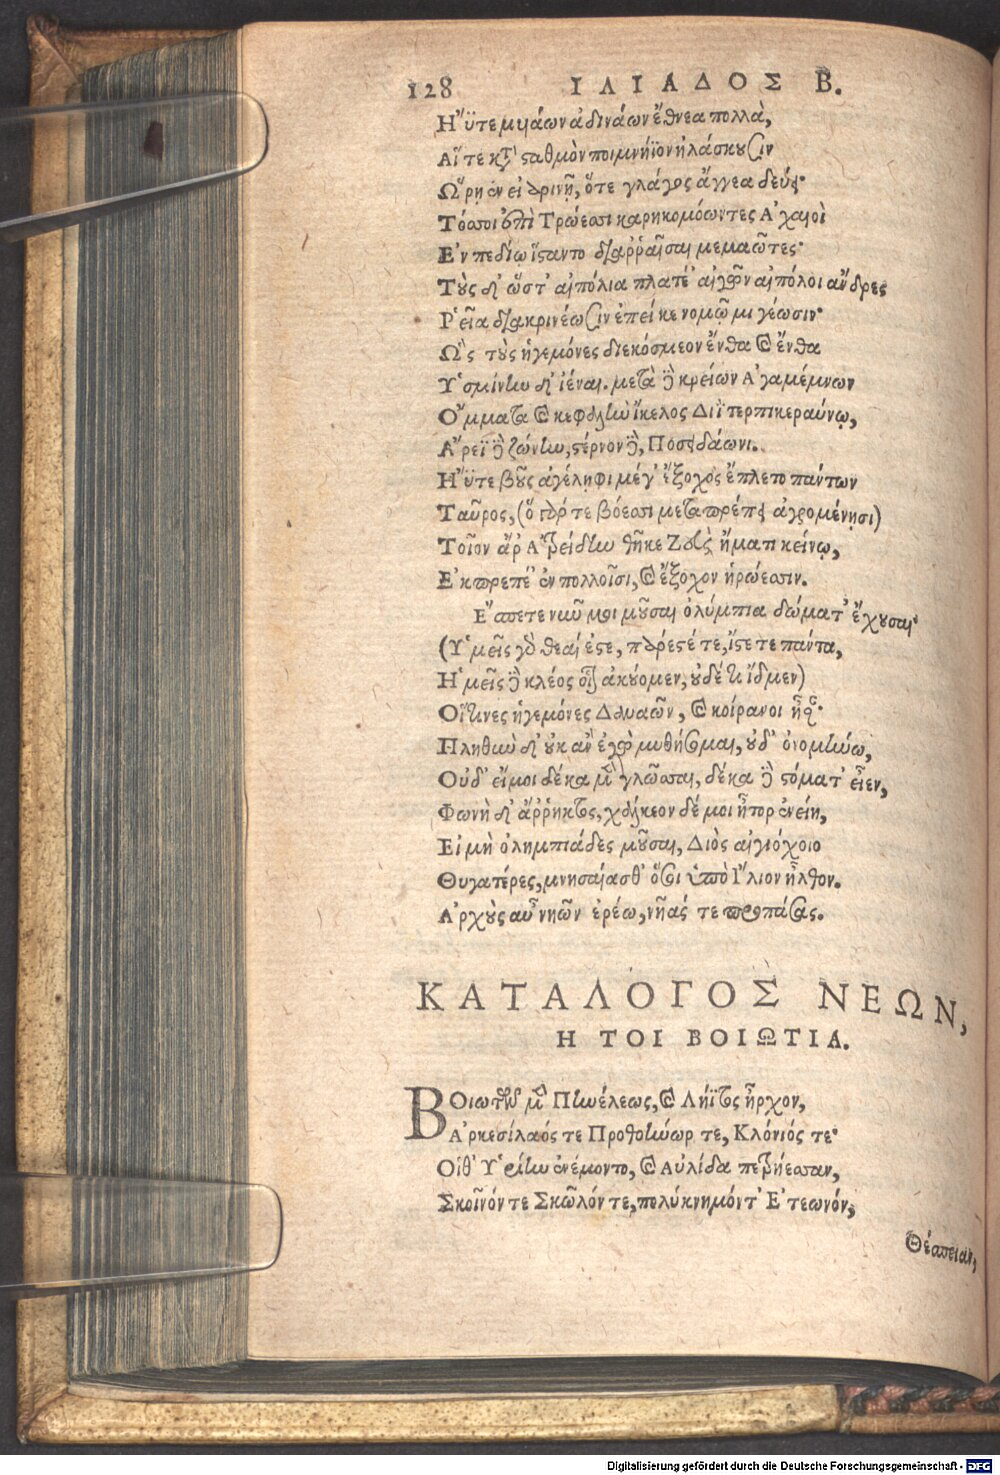 128 ΙΛΙΑΔΟΣ Β.
Ἠΰτε μυιάων ἀδινάων ἔθνεα πολλὰ,
Αἵ τε κτ̀ ϛαθμὸν ποιμνήϊον ἠλάσκουσιν
Ὥρῃ ἐν εἰαρινῇ, ὅτε γλάγος ἄγγεα δεύει·
Τόσσοι ἐπὶ Τρώεσσι καρηκομόωντες Ἀχαιοὶ
Ἐν πεδίῳ ἵϛαντο διαῤῥαῖσαι μεμαῶτες·
Τοὺς δ' ὥστ' αἰπόλια πλατέ' αἰγῶν αἰπόλοι ἄνδρες
Ῥεῖα διακρινέωσιν ἐπεί κε νομῷ μιγέωσιν·
Ὣς τοὺς ἡγεμόνες διεκόσμεον ἔνθα καὶ ἔνθα
Ὑσμίνην δ' ἰέναι. μετὰ δὲ κρείων Ἀγαμέμνων
Ὄμματα καὶ κεφαλὴν ἴκελος Διῒ τερπικεραύνῳ,
Ἄρεϊ δὲ ζώνην, ϛέρνον δὲ, Ποσειδάωνι.
Ἠΰτε βοῦς ἀγέληφι μέγ' ἔξοχος ἔπλετο πάντων
Ταῦρος, (ὁ γάρ τε βόεσσι μεταπρέπει ἀγρομένῃσι)
Τοῖον ἄρ Ἀτρείδην θῆκε Ζεὺς ἤματι κείνῳ,
Ἐκπρεπέ' ἐν πολλοῖσι, καὶ ἔξοχον ἡρώεσσιν.
Ἔσπετε νῦν μοι μοῦσαι ὀλύμπια δώματ' ἔχουσαι·
(Ὑμεῖς γὰρ θεαί ἐϛε, πάρεϛέ τε, ἴϛε τε πάντα,
Ἡμεῖς δὲ κλέος οἶον ἀκούομεν, οὐδέ τι ἴδμεν)
Οἵτινες ἡγεμόνες Δαναῶν, καὶ κοίρανοι ἦσαν·
Πληθὺν δ' οὐκ ἂν ἐγὼ μυθήσομαι, οὐδ' ὀνομήνω,
Οὐδ' εἴ μοι δέκα μὲν γλῶσσαι, δέκα δὲ ϛόματ' εἶεν,
Φωνὴ δ' ἄῤῥηκτος, χάλκεον δέ μοι ἦτορ ἐνείη,
Εἰ μὴ ὀλημπιάδες μοῦσαι, Διὸς αἰγιόχοιο
Θυγατέρες, μνησαίασθ' ὅσοι ὑπὸ Ἴλιον ἦλθον.
Ἀρχοὺς αὖ νηῶν ἐρέω, νῆάς τε προπάσας.
ΚΑΤΑΛΟΓΟΣ ΝΕΩΝ,
Η ΤΟΙ ΒΟΙΩΤΙΑ.
ΒΟιωτῶν μὲν Πηνέλεως, καὶ Λήϊτος ἦρχον,
Ἀρκεσίλαός τε Προθοήνωρ τε, Κλόνιός τε·
Οἵθ' Ὑρίην ἐνέμοντο, καὶ Αὐλίδα πετρήεσσαν,
Σκοῖνόν τε Σκῶλόν τε, πολύκνημόντ' Ἐτεωνόν,
Θέσπειαν,
Digitalisierung gefördert durch die Deutsche Forschungsgemeinschaft - DFG